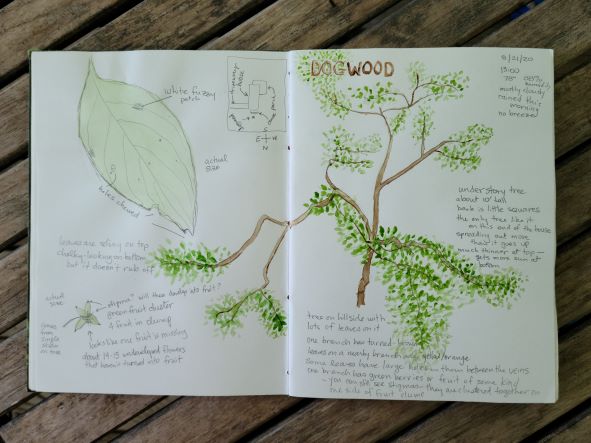 white fuzzy
patch
actual
size
holes chewed
leaves are shiny on top
chalky-looking on bottom
but it doesn't rub off
actual
size
stigma - will these develop into fruit?
green fruit cluster
4 fruit in clump
looks like one fruit is missing
about 14-15 undeveloped flowers
that haven't turned into fruit
comes
from
single
on tree
house
E W
N
DOGWOOD
8/21/20
13:00
78°
mostly cloudy
rained this
morning
no breeze
understory tree
about 10' tall
bark is little squares
the only tree like it
on this end of the house
spreading out more
than it goes up
much thinner at top —
gets more sun at
bottom
tree on hillside with
lots of leaves on it
one branch has turned brown
leaves on a nearby branch are yellow/orange
some leaves have large holes in them between the veins
one branch has green berries or fruit of some kind
- you can still see stigmas - they are clustered together on
one side of fruit clump